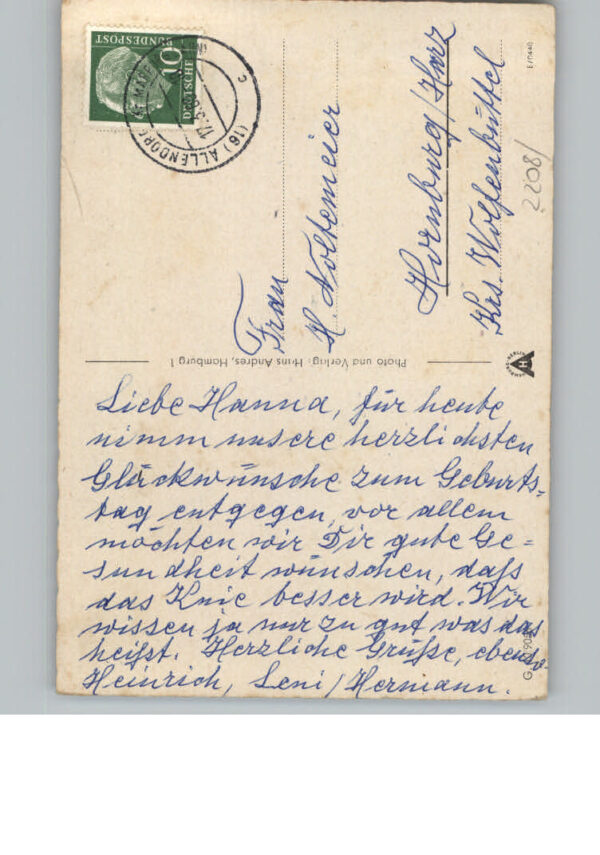 DEUTSCHE
BUNDESPOST
10
(16) ALLENDORF
c
Frau
H. Noltemeier
Hornburg/Harz
Krs. Wolfenbüttel
2208/
E/0440
Photo und Verlag: Hans Andres, Hamburg 1
HA
Liebe Hanna, für heute
nimm unsere herzlichsten
Glückwünsche zum Geburts-
tag entgegen, vor allem
möchten wir Dir gute Ge=
sundheit wünschen, daß
das Knie besser wird. Wir
wissen ja nur zu gut was das
heißt. Herzliche Grüße, ebenso
Heinrich, Leni / Hermann.